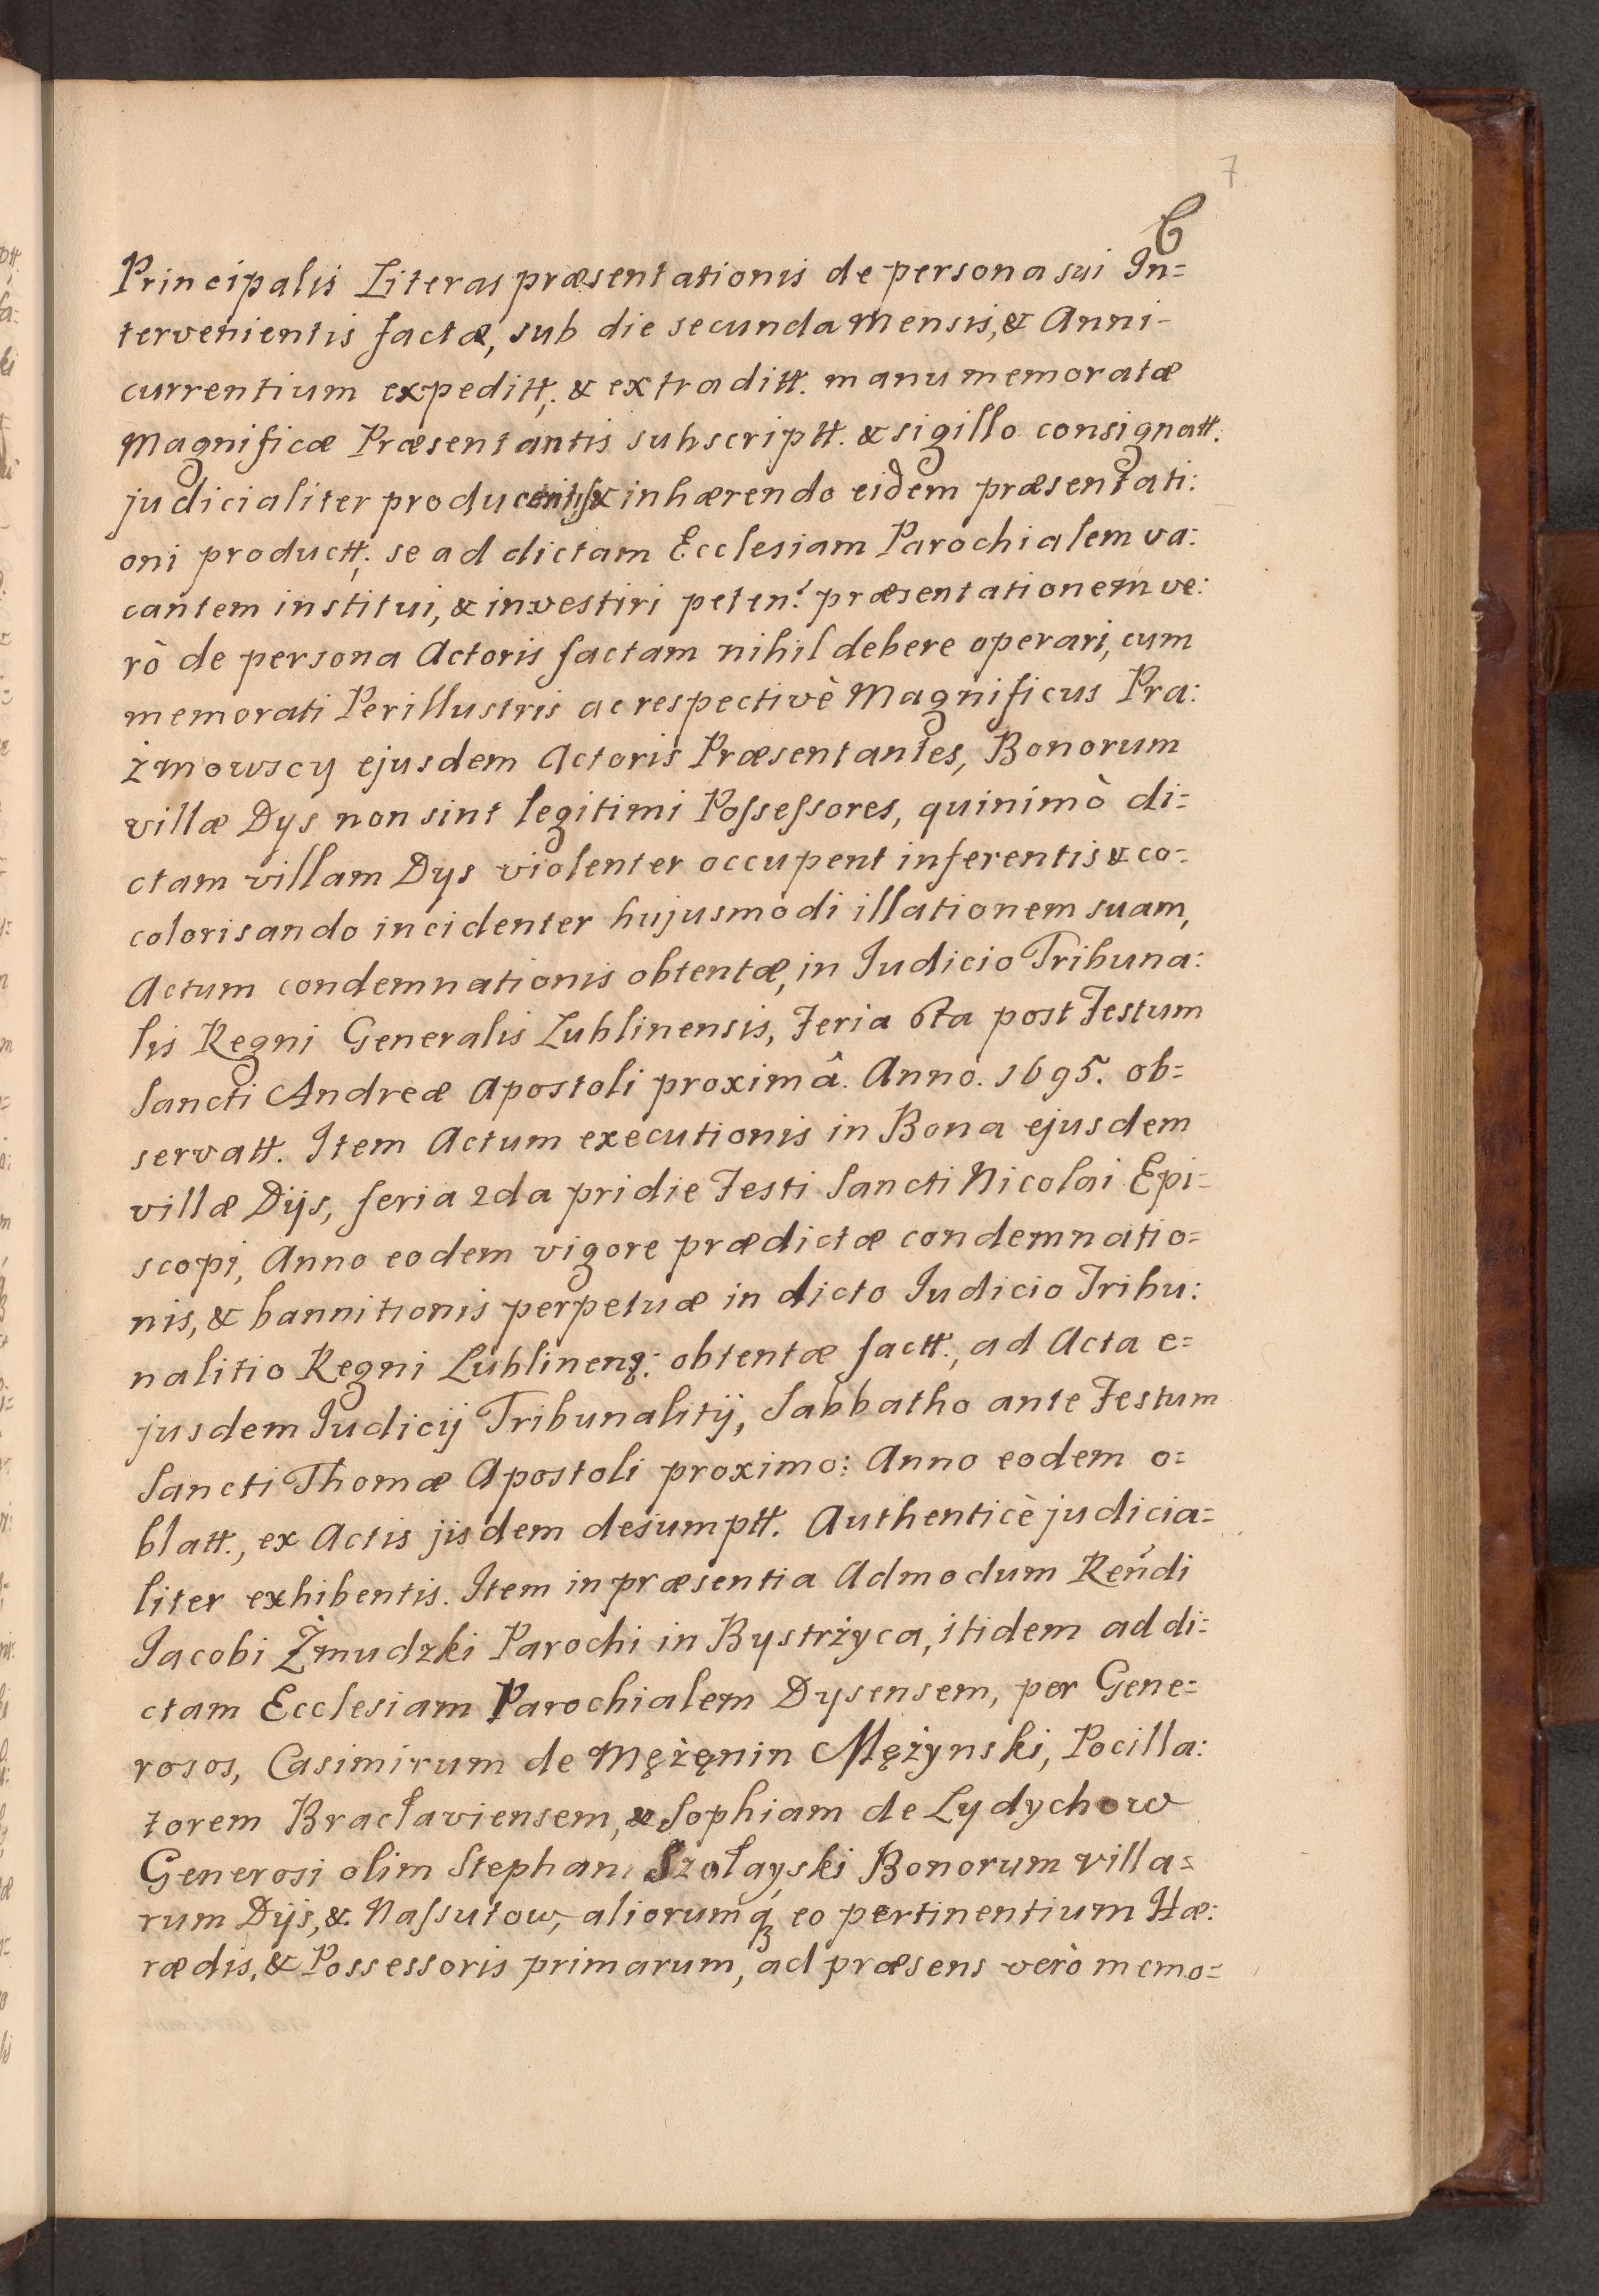 7
C
Principalis Literas præsentationis de persona sui In=
tervenientis factæ, sub die secunda mensis, & Anni-
currentium expeditt, & extraditt. manu memoratæ
Magnificæ Præsentantis subscriptt. & sigillo consignatt.
judicialiter producentis & inhærendo eidem præsentati:
oni productt, se ad dictam Ecclesiam Parochialem va:
cantem institui, & investiri peten: præsentationem ve:
rò de persona Actoris factam nihil debere operari, cum
memorati Perillustris ac respectivè Magnificus Pra:
żmowscy ejusdem Actoris Præsentantes, Bonorum
villæ Dys non sint legitimi Poſseſsores, quinimò di=
ctam villam Dys violenter occupent inferentis & co=
colorisando incidenter hujusmodi illationem suam,
Actum condemnationis obtentæ, in Iudicio Tribuna:
lis Regni Generalis Lublinensis, Feria 6ta post Festum
Sancti Andreæ Apostoli proximâ. Anno. 1695. ob=
servatt. Item Actum executionis in Bona ejusdem
villæ Dijs, feria 2da pridie Festi Sancti Nicolai Epi=
scopi, Anno eodem vigore prædictæ condemnatio=
nis, & bannitionis perpetuæ in dicto Iudicio Tribu:
nalitio Regni Lublinenȝ: obtentæ factt., ad Acta e=
jusdem Iudicij Tribunalitij, Sabbatho ante Festum
Sancti Thomæ Apostoli proximo: Anno eodem o=
blatt., ex Actis jisdem desumptt. Authenticè judicia=
liter exhibentis. Item in præsentia Admodum Reńdi
Iacobi Żmudzki Parochi in Bystrżyca, itidem ad di=
ctam Ecclesiam Parochialem Dysensem, per Gene=
rosos, Casimirum de Mężęnin Mężynski, Pocilla:
torem Bracłaviensem, & Sophiam de Lydychow
Generosi olim Stephani Szołayski Bonorum villa=
rum Dijs, &. Naſsutow, aliorumqꝫ eo pertinentium Hæ:
rædis, & Possessoris primarum, ad præsens verò memo=